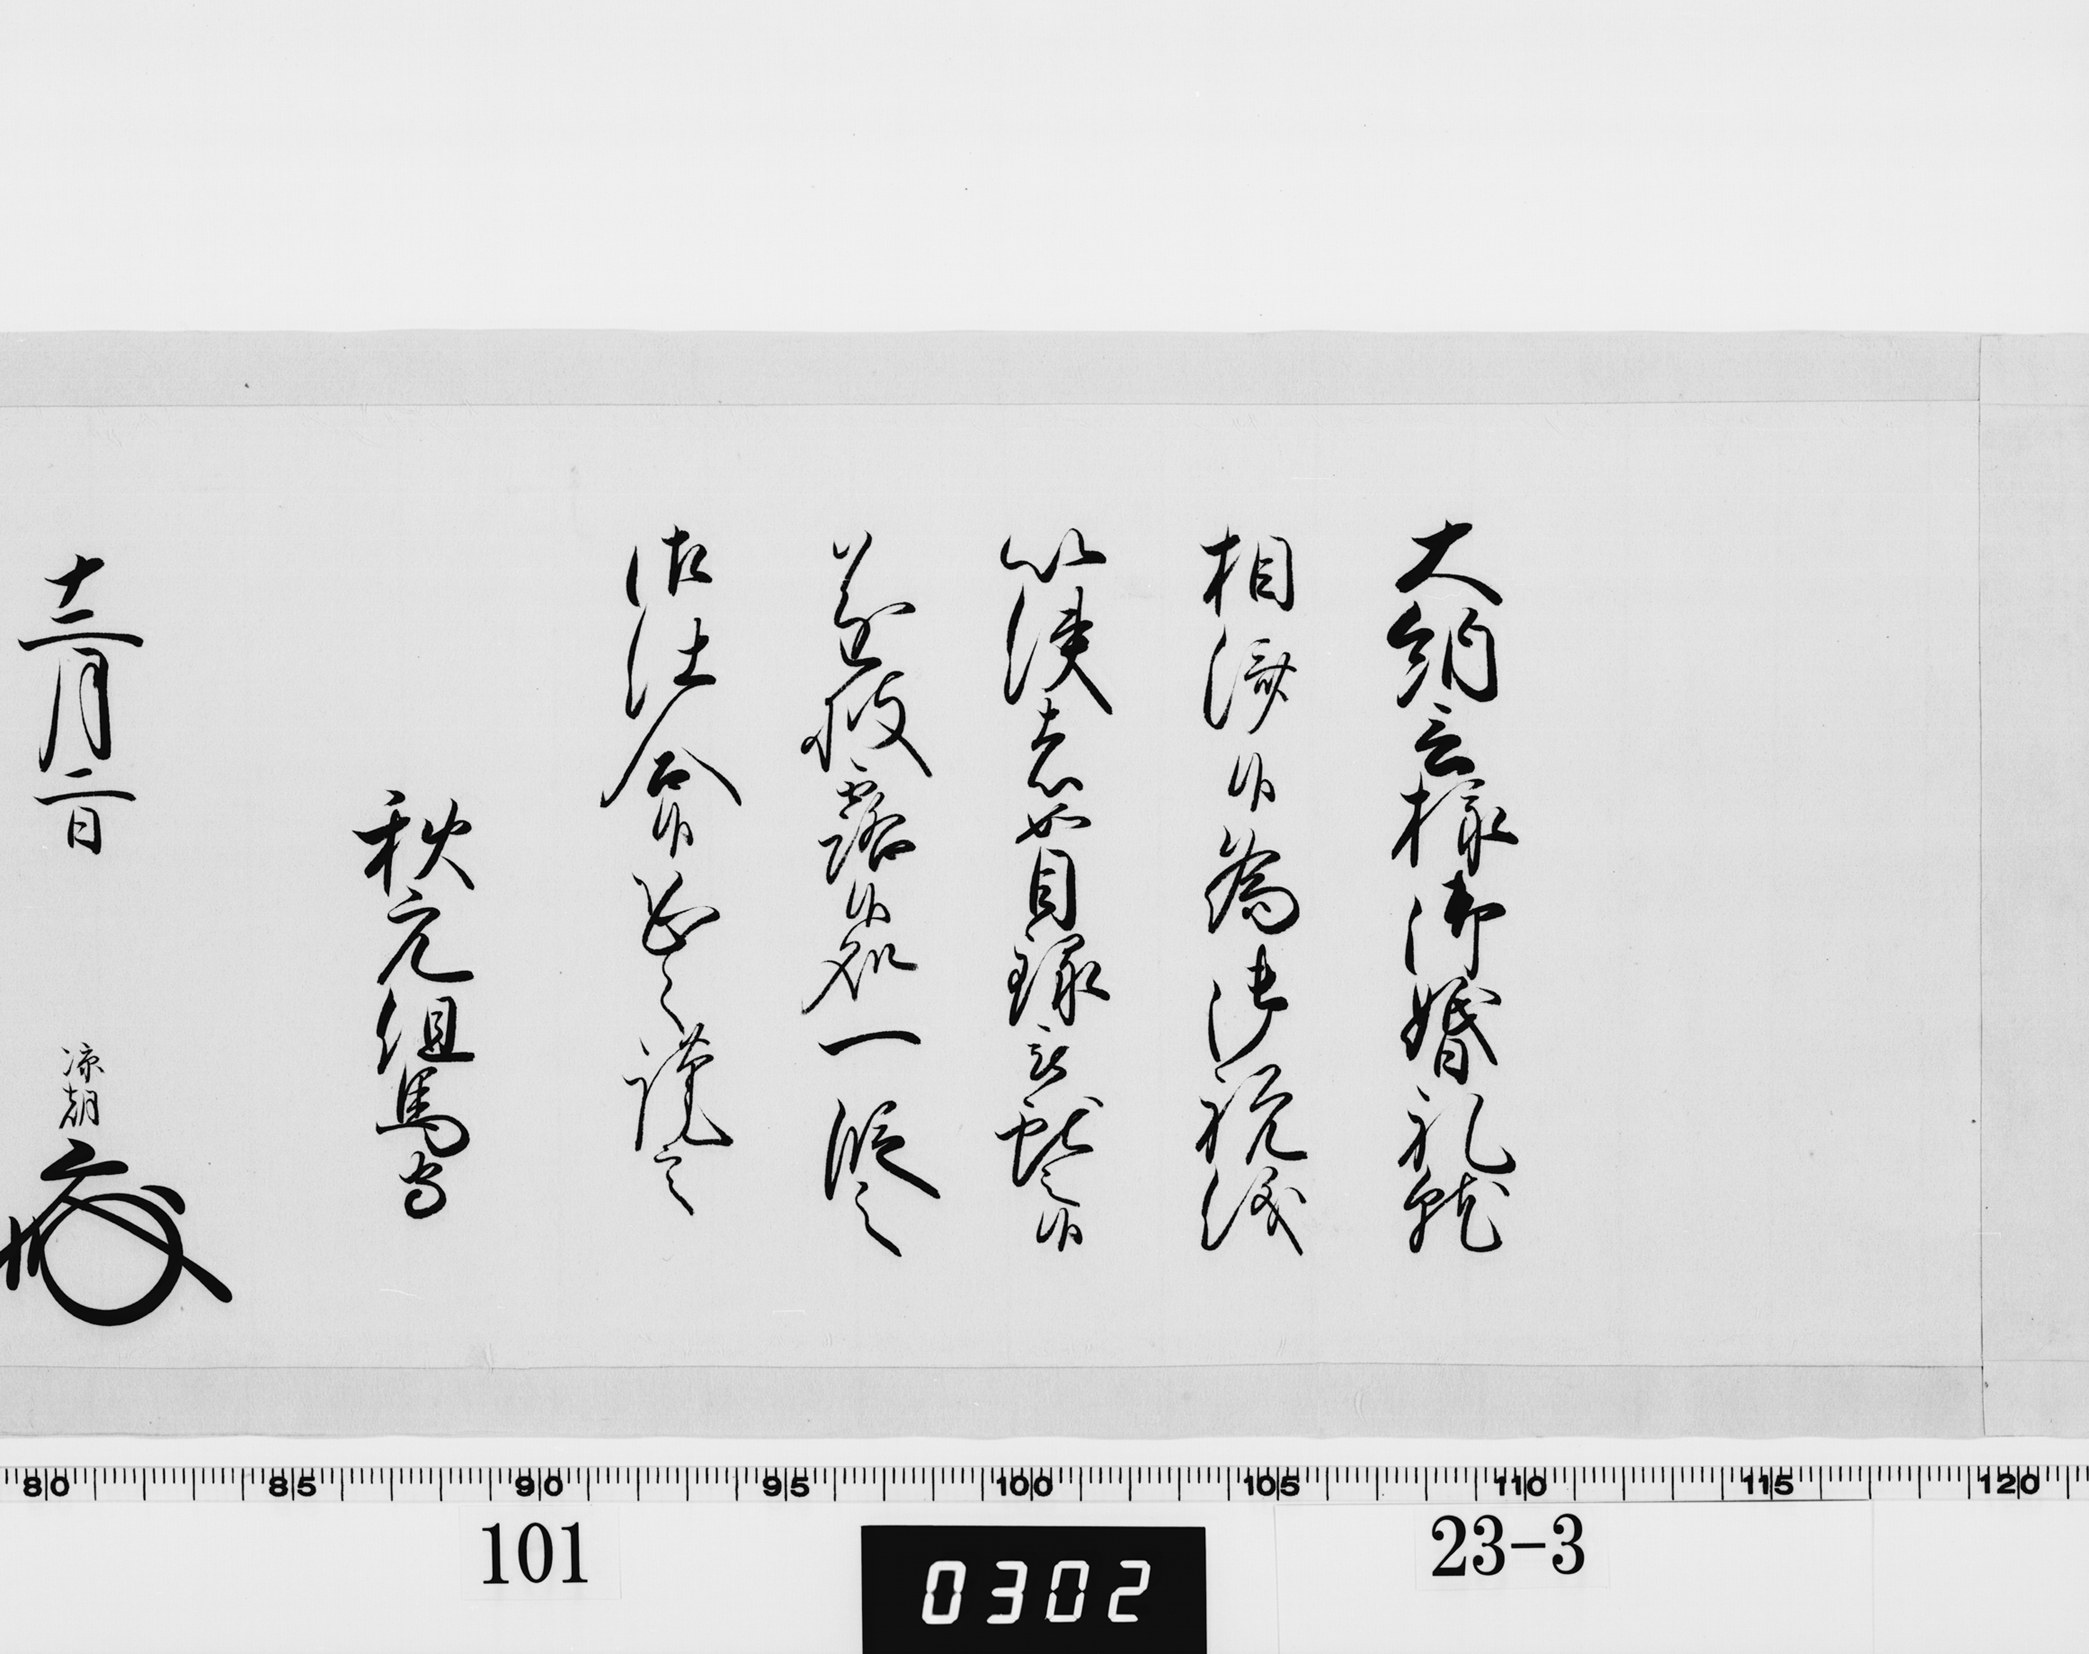 大納言様御婚礼就
相済候為御祝儀
以使者如目録被献之候
遂披露候処一段之
御仕合候恐々謹言
秋元但馬守
十二月二日
凉朝
80 85 90 95 100 105 110 115 120
101
0302
23-3